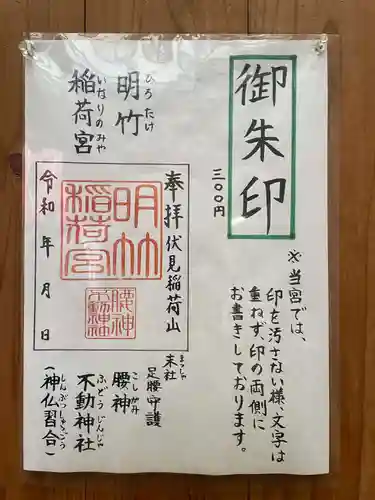 御朱印
三〇〇円
※当宮では、
印を汚さない様、文字は
重ねず、印の両側に
お書きしております。
明竹
ひろたけ
稲荷宮
いなりのみや
奉拝 伏見稲荷山
明竹
稲荷宮
腰神
不動神
令和 年 月 日
末社
まっしゃ
足腰守護
腰神
こしがみ
不動神社
ふどうじんじゃ
(神仏習合)
しんぶつしゅうごう